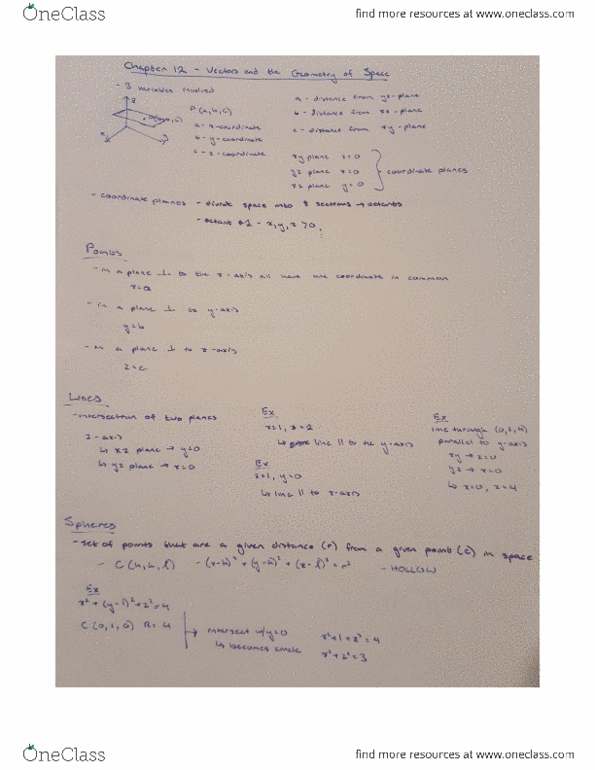 OneClass
find more resources at www.oneclass.com
Chapter 12 - Vectors and the Geometry of Space
- 3 variables involved
z
P(a,b,c)
a - x-coordinate
b - y-coordinate
c - z-coordinate
a - distance from yz-plane
b - distance from xz-plane
c - distance from xy-plane
xy plane z=0
yz plane x=0
xz plane y=0
coordinate planes
- coordinate planes - divide space into 8 sections → octants
- octant #1 - x,y,z >0
Points
- in a plane ⊥ to the x-axis all have one coordinate in common
x=a
- in a plane ⊥ to y-axis
y=b
- in a plane ⊥ to z-axis
z=c
Lines
- intersection of two planes
z-axis
↳ xz plane → y=0
↳ yz plane → x=0
Ex
x=1, z=2
↳ line || to the y-axis
Ex
z=1, y=0
↳ line || to x-axis
Ex
line through
parallel to y-axis
↳ x=0, z=4
Spheres
- set of points that are a given distance (r) from a given point (C) in space
- C(h,k,l) - (x-h)² + (y-k)² + (z-l)² = r² - HOLLOW
Ex
x²+(y-1)²+z²=4
C(0,1,0) R=4
→ intersect w/y=0
↳ becomes circle
x²+1+z²=4
x²+z²=3
OneClass
find more resources at www.oneclass.com